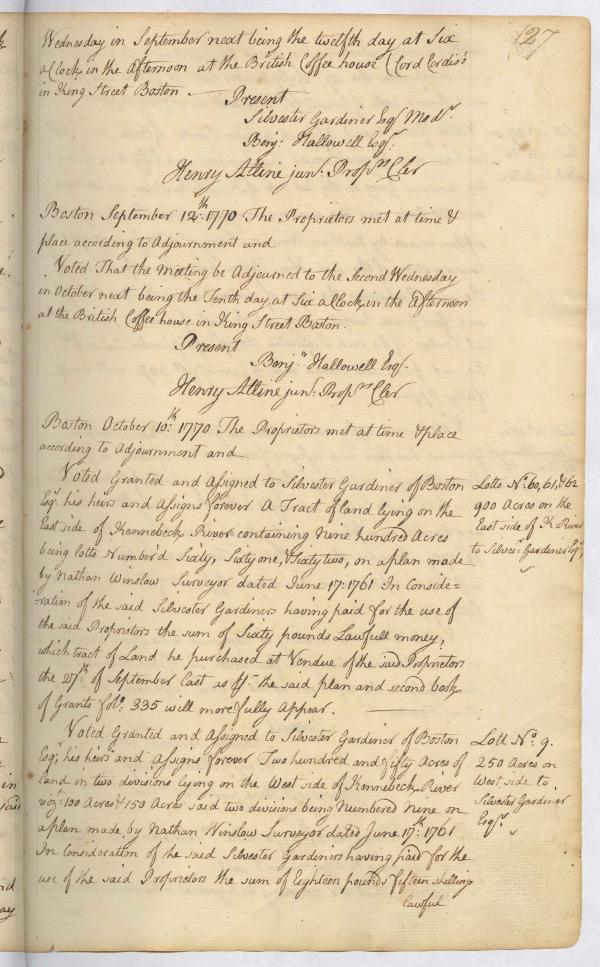 27
Wednesday in September next being the twelfth day, at Six
a Clock, in the Afternoon at the British Coffee house (Cord Cordis's
in King Street Boston
Present
Silvester Gardiner Esqr. Modr.
Benj: Hallowell Esqr.
Henry Alline junr. Proprs Cler
Boston September 12th. 1770 The Proprietors met at time &
place according to Adjournment and
Voted That the meeting be Adjourned to the Second Wednesday
in October next being the Tenth day, at Six a Clock, in the Afternoon
at the British Coffee house in King Street Boston.
Present
Benja. Hallowell Esqr.
Henry Alline junr. Proprs Cler
Boston October 10th. 1770 The Proprietors met at time & place
according to Adjournment and
Voted Granted and Assigned to Silvester Gardiner of Boston
Esqr. his heirs and Assigns forever A Tract of land lying on the
East side of Kennebeck River containing Nine hundred Acres
being lotts Number'd Sixty, Sixty one, & Sixty two, on a plan made
by Nathan Winslow Surveyor dated June 17: 1761 In Conside=
=ration of the said Silvester Gardiners having paid for the use of
the said Proprietors the sum of Sixty pounds Lawfull money,
which tract of Land he purchased at Vendue of the said Proprietors
the 27th. of September last as pr. the said plan and second book
of Grants folo. 335 will more fully Appear.
Lotts No. 60, 61, & 62
900 Acres on the
East side of K River
to Silvester Gardiner Esqr.
Voted Granted and Assigned to Silvester Gardiner of Boston
Esqr. his heirs and Assigns forever Two hundred and fifty Acres of
land in two divisions lying on the West side of Kennebeck River
vizt. 100 Acres & 150 Acres said two divisions being Numbered Nine on
a plan made by Nathan Winslow Surveyor dated June 17th. 1761
In Consideration of the said Silvester Gardiners having paid for the
use of the said Proprietors the sum of Eighteen pounds fifteen shilling
lawful
Lott No. 9.
250 Acres on
West side to
Silvester Gardiner
Esqr.